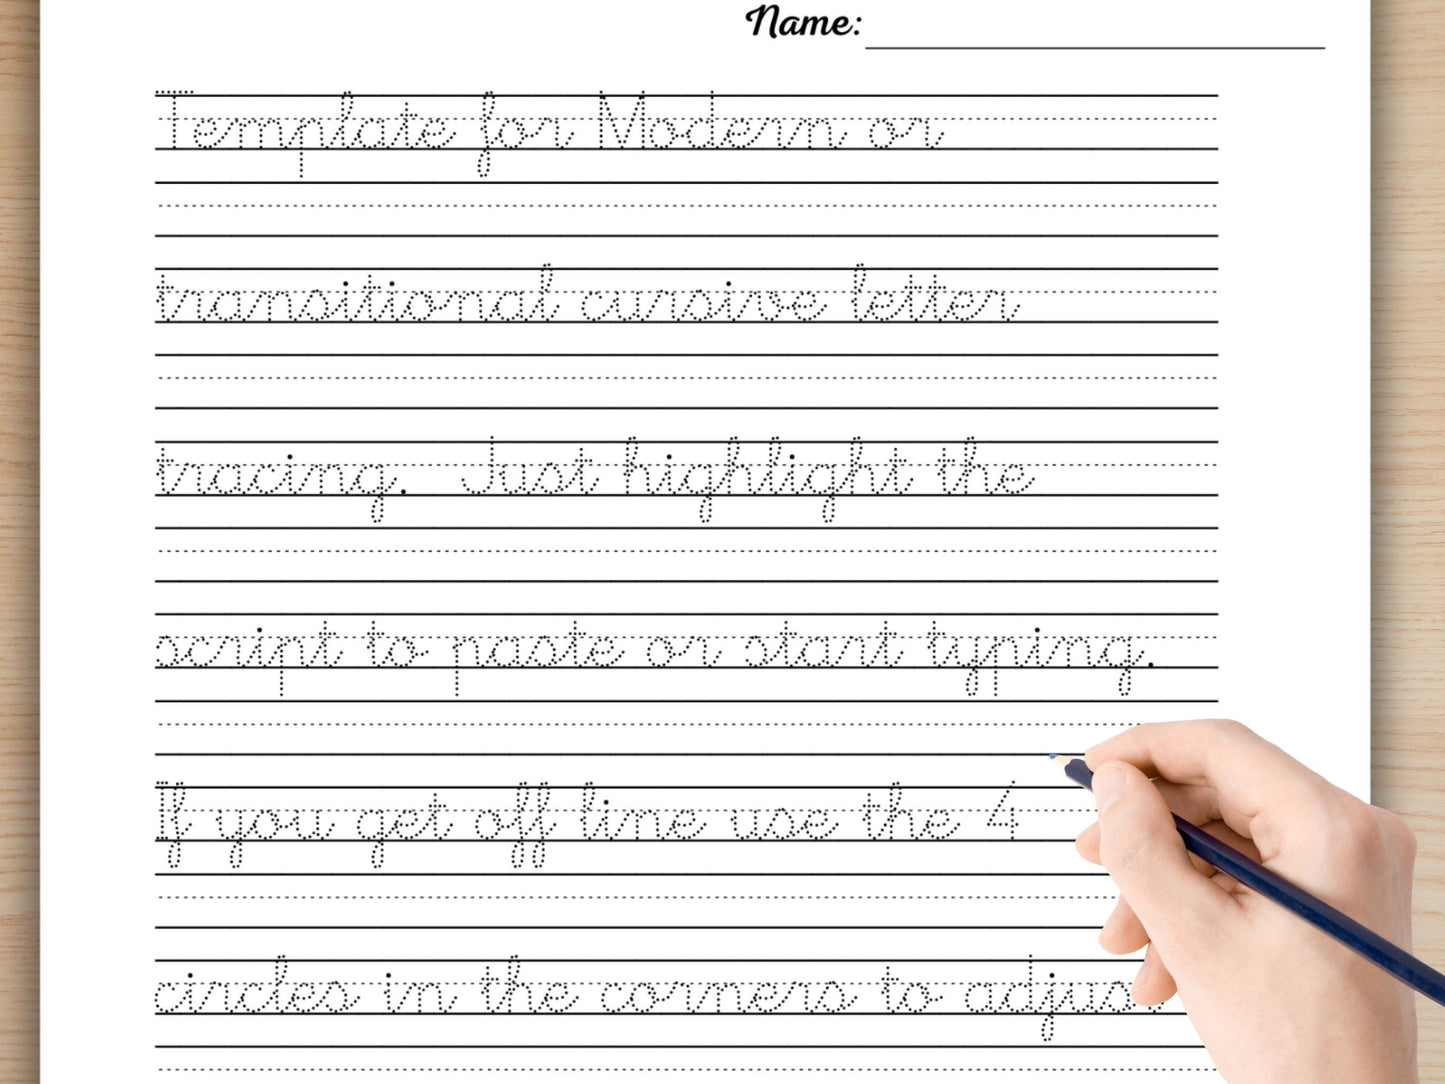 Name:
Template for Modern or
transitional cursive letter
tracing. Just highlight the
script to paste or start typing.
If you get off line use the 4
circles in the corners to adjust